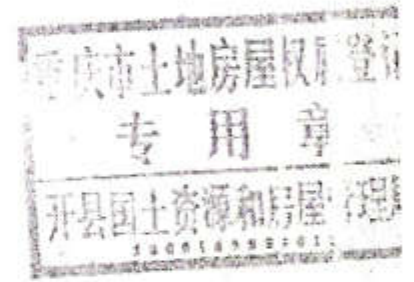 重庆市土地房屋权属登记
专用章
开县国土资源和房屋管理局